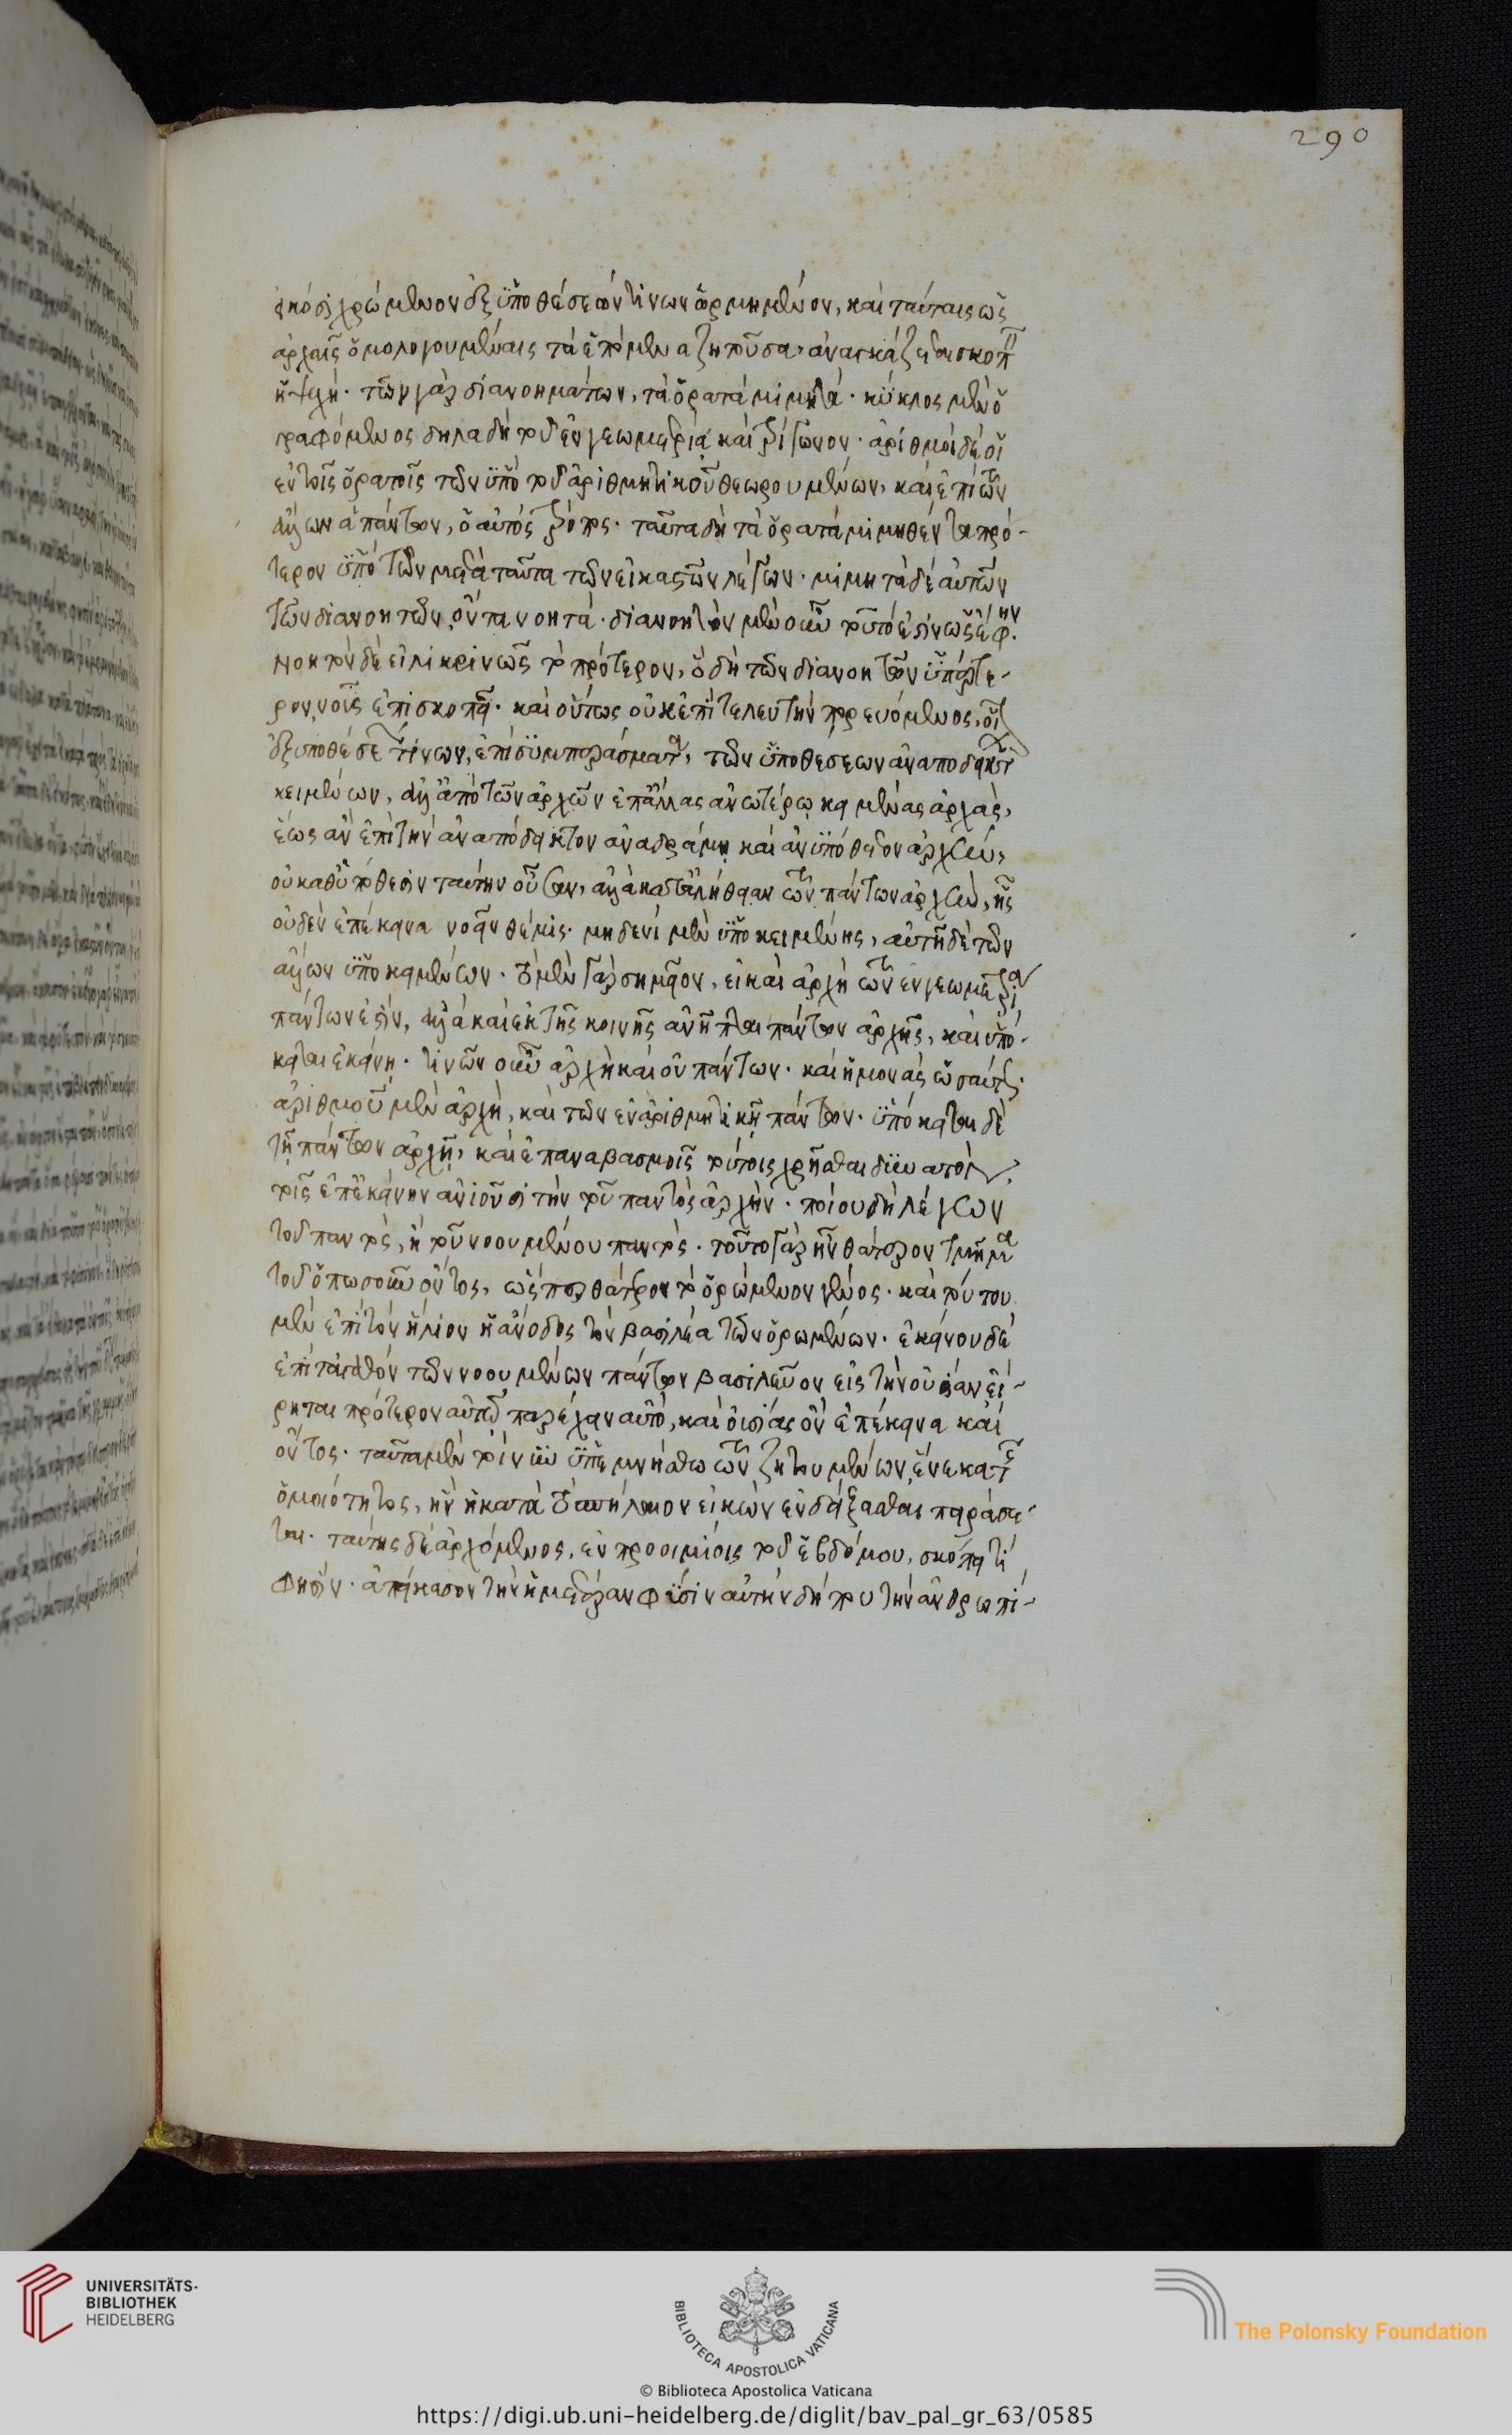 290
εἰκόσι χρώμενον ἐξ ὑποθέσεών τινων ὁρμημένον, καὶ ταύταις ὡς
ἀρχαῖς ὁμολογουμέναις τὰ ἑπόμενα ζητοῦσα ἀναγκάζεται σκοπεῖν
ἡ ψυχή. τῶν γὰρ διανοημάτων, τὰ ὁρατὰ μιμητά. κύκλος μὲν ὁ
γραφόμενος δηλαδὴ τοῦ ἐν γεωμετρίᾳ καὶ τρίγωνον. ἀριθμοὶ δὲ οἱ
ἐν τοῖς ὁρατοῖς τῶν ὑπὸ τοῦ ἀριθμητικοῦ θεωρουμένων, καὶ ἐπὶ τῶν
ἄλλων ἁπάντων, ὁ αὐτὸς τρόπος. ταῦτα δὴ τὰ ὁρατὰ μιμηθέντα πρό-
τερον ὑπὸ τῶν μετὰ ταῦτα τῶν εἰκαστῶν λέγων. μιμητὰ δὲ αὐτῶν
τῶν διανοητῶν ὄντα νοητά. διανοητὸν μὲν οὖν τοῦτό ἐστιν ὡς ἔφην.
νοητὸν δὲ εἰλικρινῶς τὸ πρότερον, ὃ δὴ τῶν διανοητῶν ὑπέρτε-
ρον νοῦς ἐπισκοπεῖ. καὶ οὕτως οὐκ ἐπὶ τελευτὴν πορευόμενος,
ἐξ ὑποθέσεών τινων, ἐπὶ συμπεράσματα, τῶν ὑποθέσεων ἀναποδείκτων
κειμένων, ἀλλ' ἀπὸ τῶν ἀρχῶν ἐπ' ἄλλας ἀνωτέρω κειμένας ἀρχάς,
ἕως ἂν ἐπὶ τὴν ἀναπόδεικτον ἀναδράμῃ καὶ ἀνυπόθετον ἀρχήν,
οὐ καθ' ὑπόθεσιν ταύτην οὖσαν, ἀλλὰ κατ' ἀλήθειαν τῶν πάντων ἀρχήν, ἧς
οὐδὲν ἐπέκεινα νοεῖν θέμις. μηδενὶ μὲν ὑποκειμένης, αὐτῇ δὲ τῶν
ἄλλων ὑποκειμένων. τὸ μὲν γὰρ σημεῖον, εἰ καὶ ἀρχὴ τῶν ἐν γεωμετρίᾳ
πάντων ἐστίν, ἀλλὰ καὶ ἐκ τῆς κοινῆς ἀνῆπται πάντων ἀρχῆς, καὶ ὑπό-
κειται ἐκείνῃ. τινῶν οὖν ἀρχὴ καὶ οὐ πάντων. καὶ ἡ μονὰς ὡσαύτως.
ἀριθμοῦ μὲν ἀρχή, καὶ τῶν ἐν ἀριθμητικῇ πάντων. ὑπόκειται δὲ
τῇ πάντων ἀρχῇ, καὶ ἐπαναβασμοῖς τούτοις χρῆσθαι δυνατὸν
τοῖς ἐπ' ἐκείνην ἀνιοῦσι τὴν τοῦ παντὸς ἀρχήν. ποίου δὴ λέγων
τοῦ παντός, ἢ τοῦ νοουμένου παντός. τοῦτο γὰρ ἦν θάτερον τμῆμα
τοῦ ὁπωσοῦν ὄντος, ὥσπερ θάτερον τὸ ὁρώμενον γένος. καὶ τούτου
μὲν ἐπὶ τὸν ἥλιον ἡ ἄνοδος τὸν βασιλέα τῶν ὁρωμένων. ἐκείνου δὲ
ἐπὶ τἀγαθὸν τῶν νοουμένων πάντων βασιλεῦον εἰς τὴν οὐσίαν εἴ-
ρηται πρότερον αὐτοῦ παρέχειν αὐτό, καὶ οὐσίας ὂν ἐπέκεινα καὶ
ὄντος. ταῦτα μὲν τοίνυν ὑπεμνήσθω τῶν ζητουμένων ἕνεκα τῆς
ὁμοιότητος, ἣν ἡ κατὰ τὸ σπήλαιον εἰκὼν ἐνδείξασθαι πειράσε-
ται. ταύτης δὲ ἀρχόμενος, ἐν προοιμίοις τοῦ ἑβδόμου, σκόπει τί
φησιν. ἀπείκασον τὴν ἡμετέραν φύσιν αὐτὴν δή που τὴν ἀνθρωπί-
UNIVERSITÄTS-
BIBLIOTHEK
HEIDELBERG
BIBLIOTECA APOSTOLICA VATICANA
The Polonsky Foundation
© Biblioteca Apostolica Vaticana
https://digi.ub.uni-heidelberg.de/diglit/bav_pal_gr_63/0585